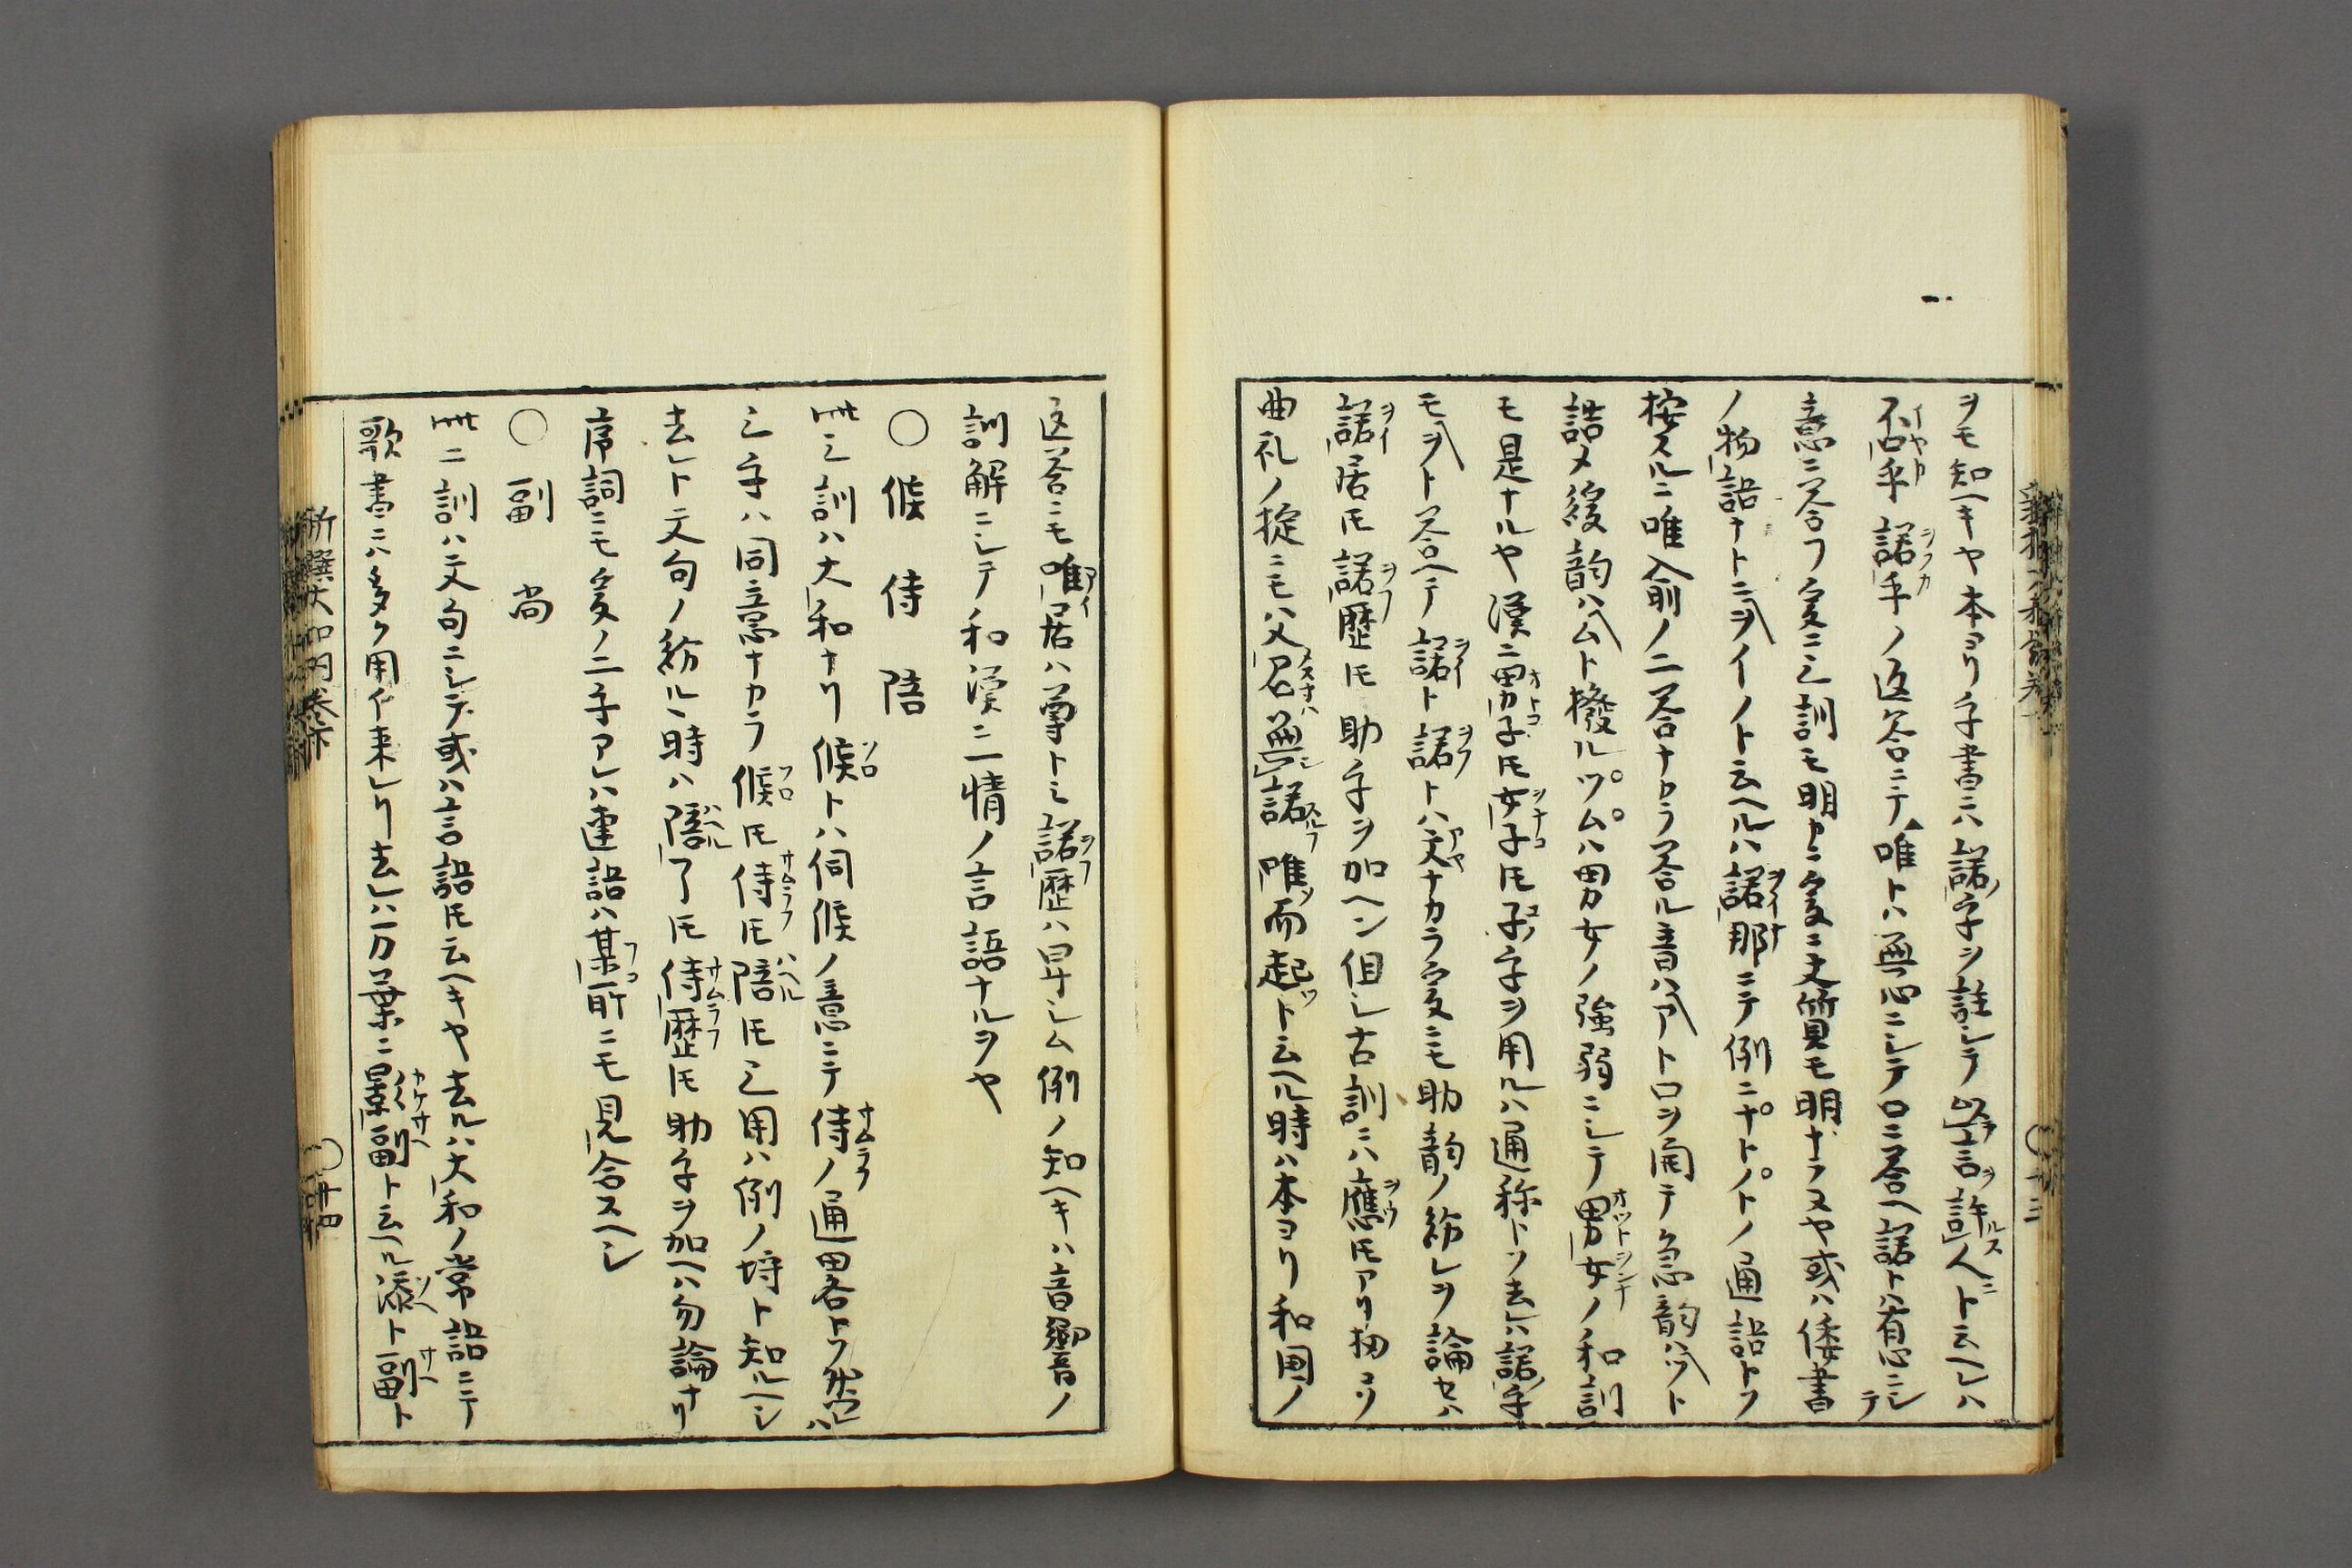 ヲモ知ヘキヤ本ヨリ字書ニハ諾字ヲ註シテ以言許人ニトニ云ヘレハ
否乎諾乎ノ返答ニテ唯トハ無心ニシテ口ニ答ヘ諾トハ有心ニシテ
意ニ答フ爰ニ三訓モ明ヤニ爰ニ文質モ明ナラスヤ或ハ倭書
ノ物語ナトニヲイノト云ヘルハ諾那ニテ例ニナトノトノ通語トソ
按スルニ唯兪ノ二答ナカラ答ル音ハアト口ヲ開テ急韵ハツト
詰メ緩韵ハムト撥ルツムハ男女ノ強弱ニシテ男女ノ和訓
モ是ナルヤ漢ニ男子氏女子氏子字ヲ用ルハ通称トソ去ハ諾字
モヲト答ヘテ諾ト諾トハ文ナカラ爰ニモ助韵ノ紛レヲ論セハ
諾居氏諾歴氏助字ヲ加ヘン但シ古訓ニハ應氏アリ扨コソ
曲礼ノ掟ニモハ父召無諾唯而起ツト云ヘル時ハ本ヨリ和国ノ
返答ニモ唯居ハ尊トミ諾歴ハ卑シム例ノ知ヘキハ音響ノ
訓解ニシテ和漢ニ一情ノ言語ナルヲヤ
〇候 侍 陪
此三訓ハ大和ナリ候トハ伺候ノ意ニテ侍ノ通略トソ然レハ
三字ハ同意ナカラ候氏侍氏陪氏三用ハ例ノ埒ト知ルヘシ
去レト文句ノ紛ルヽ時ハ陪了氏侍歴氏助字ヲ加ヘハ勿論ナリ
序詞ニモ爰ノ二字アレハ連語ハ某所ニモ見合スヘシ
〇副 尚
此二訓ハ文句ニシテ或ハ言語氏云ヘキヤ去ルハ大和ノ常語ニテ
歌書ニハ多ク用イ来レリ去レハ万葉ニ影副ト云ヘル添ト副ト